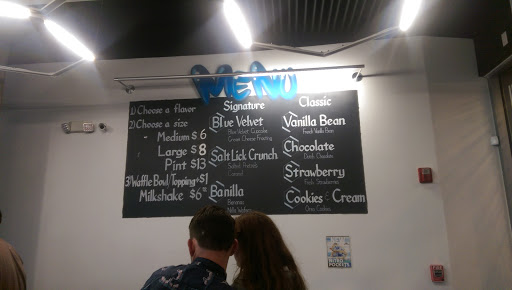 MENU
1) Choose a flavor
2) Choose a size
- Medium $6
- Large $8
Pint $13
3) Waffle Bowl/Topping +$1
Milkshake $6
Signature
Blue Velvet
Blue Velvet Cupcake
Cream Cheese Frosting
Salt Lick Crunch
Pretzels
Caramel
Banilla
Bananas
Nilla Wafers
Classic
Vanilla Bean
Fresh Vanilla Bean
Chocolate
Dutch Chocolate
Strawberry
Fresh Strawberries
Cookies & Cream
Oreo Cookies